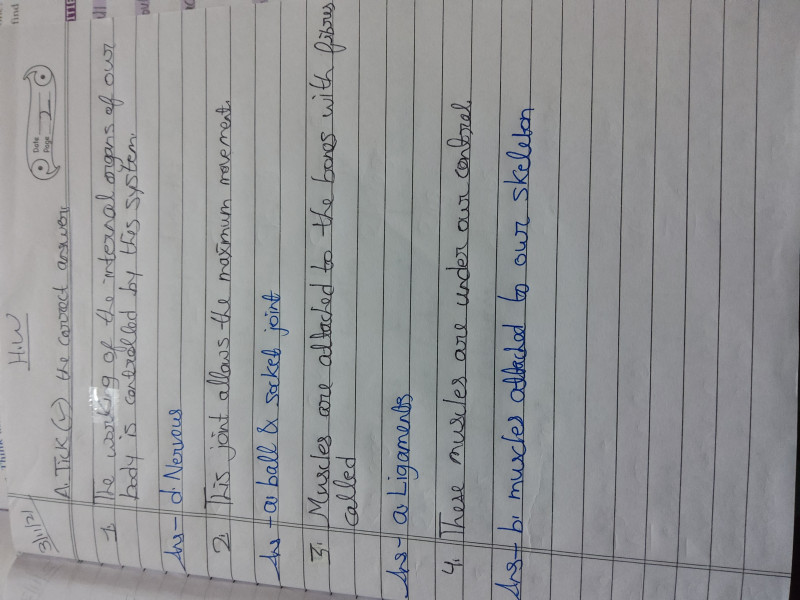 H.W
Date
Page 2
3/1/21
A. Tick (✓) the correct answer.
1. The working of the internal organs of our
body is controlled by this system.
Ans- d. Nervous
2. This joint allows the maximum movement.
Ans- a. ball & socket joint
3. Muscles are attached to the bones with fibres
called
Ans- a. Ligaments
4. These muscles are under our control.
Ans- b. muscles attached to our skeleton
find